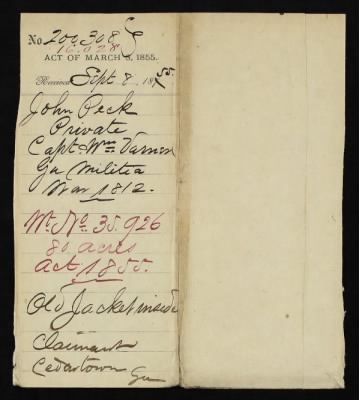 No. 200,308
16,028
ACT OF MARCH 3, 1855.
Received Sept 8, 1855.
John Peck
Private
Capt. Wm Varner
Ga Militia
War 1812.
Wt. No. 35.926
80 acres
Act 1855.
Old Jacket inside
Claimant
Cedartown Ga